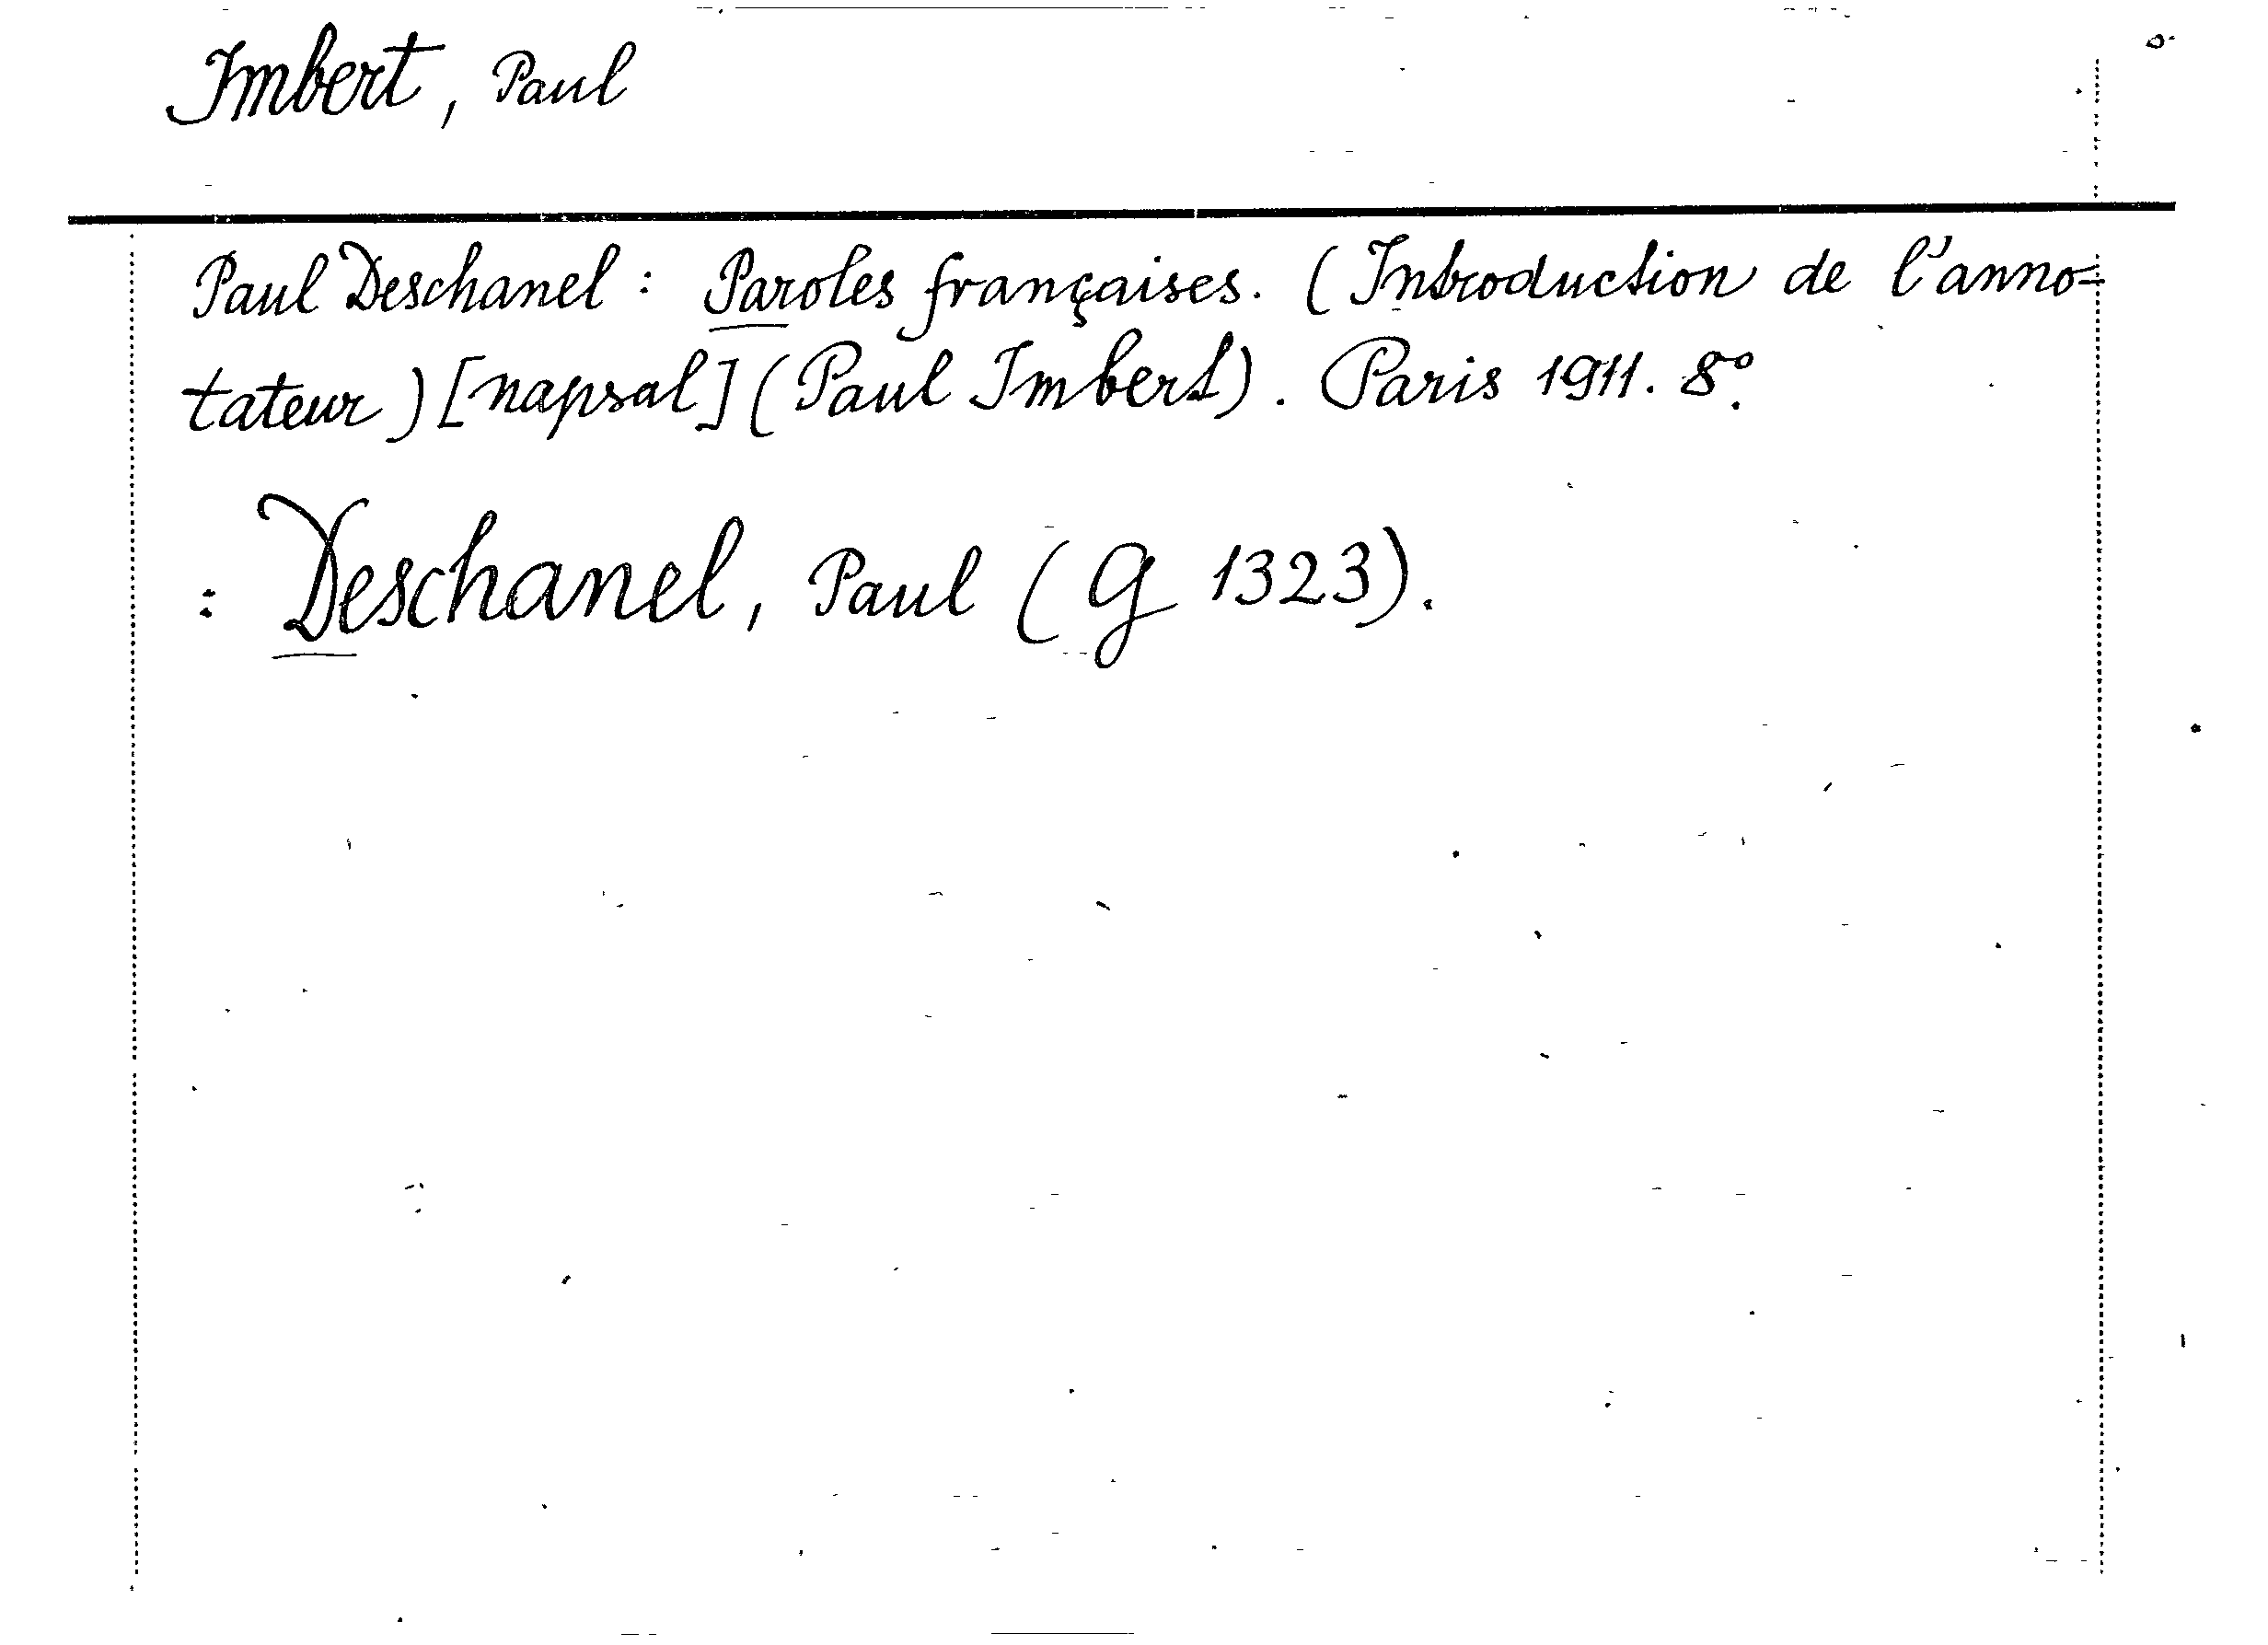 Imbert, Paul
Paul Deschanel: Paroles françaises. (Introduction de l'anno-
tateur) [napsal] (Paul Imbert). Paris 1911. 8°.
: Deschanel, Paul (G 1323).